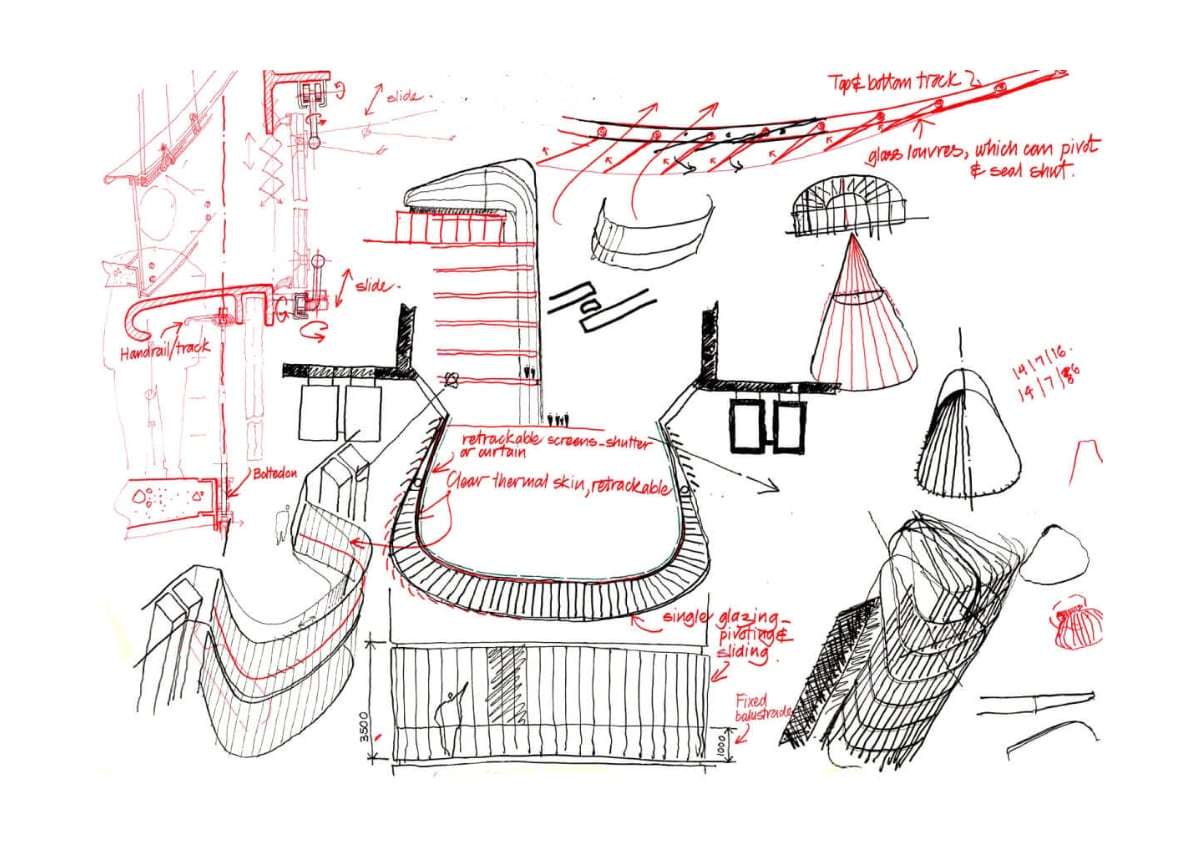 Top & bottom track 2.
slide.
glass louvres, which can pivot
& seal shut.
slide.
Handrail/track
14/7/16.
14/7/86
retrackable screens-shutter
or curtain
Boltedon
Clear thermal skin, retrackable
single glazing-
pivoting &
sliding.
Fixed
balustrade
3500
1000